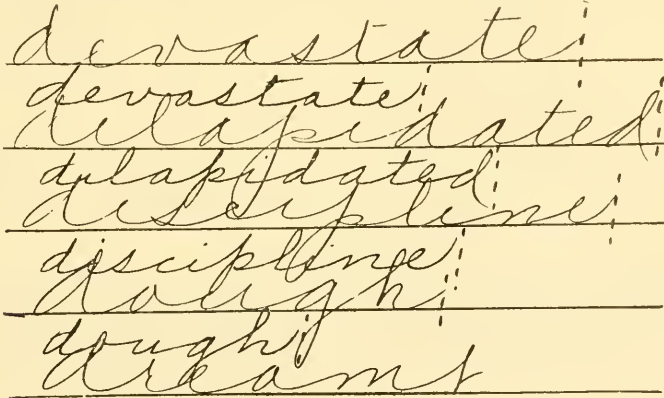 devastate
devastate
dilapidated
dilapidated
discipline
discipline
dough
dough
dreamt